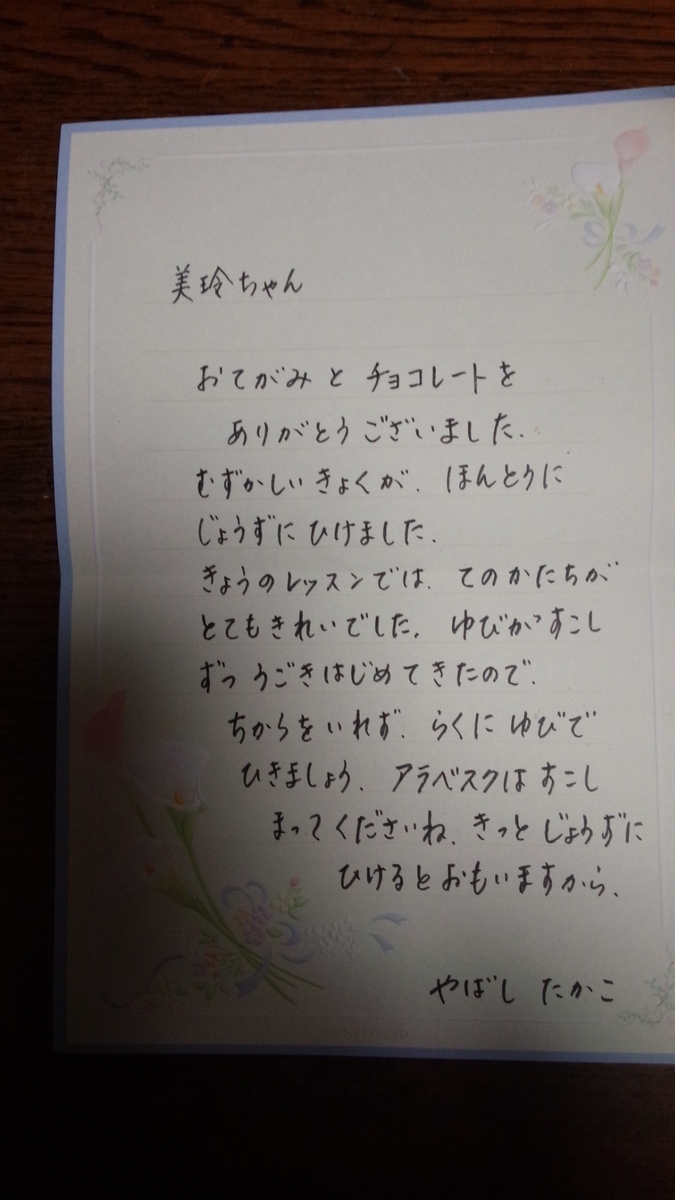 美玲ちゃん
おてがみと チョコレートを
ありがとうございました.
むずかしいきょくが、ほんとうに
じょうずに ひけました.
きょうのレッスンでは、てのかたちが
とてもきれいでした. ゆびがすこし
ずつ うごきはじめてきたので、
ちからをいれず、らくに ゆびで
ひきましょう. アラベスクは すこし
まってくださいね. きっと じょうずに
ひけるとおもいますから.
やばし たかこ